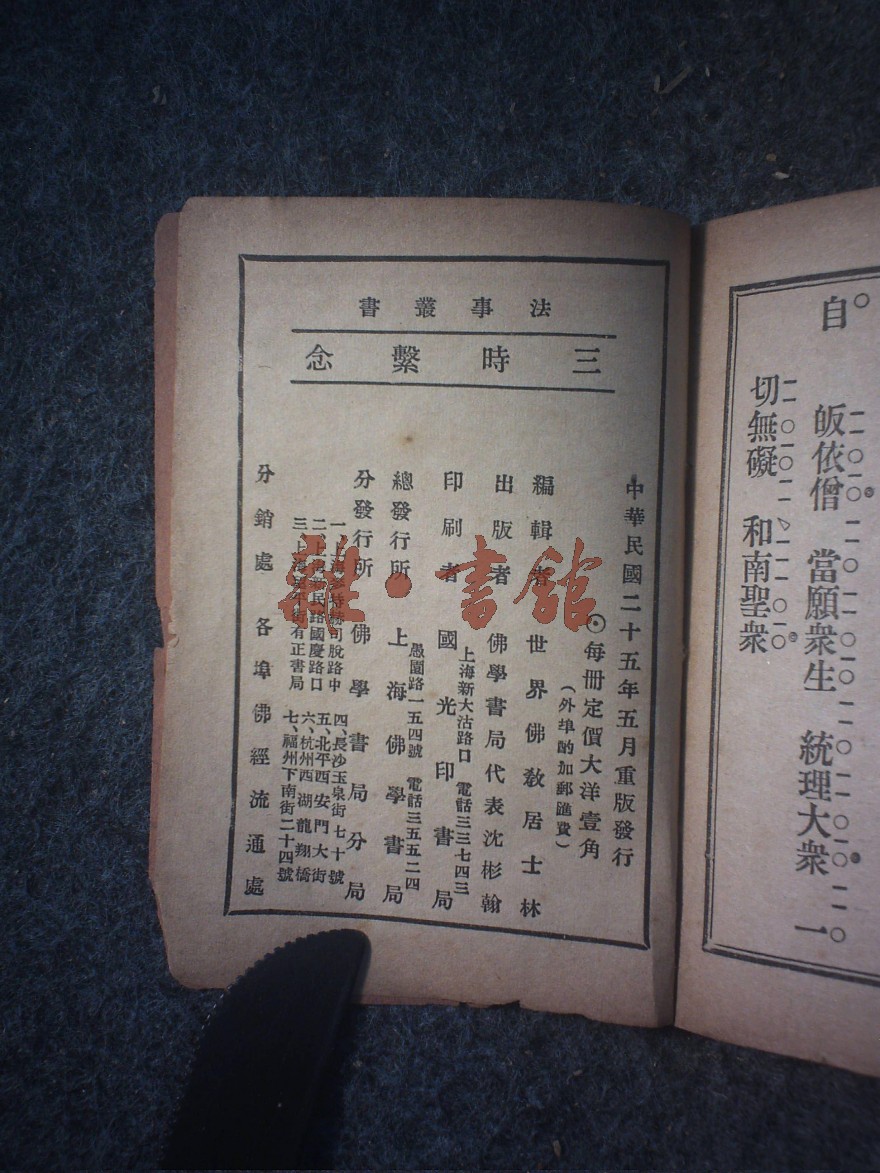 自
皈依僧 當願衆生 統理大衆 一
切無礙 和南聖衆
法事叢書
三時繫念
中華民國二十五年五月重版發行
每冊定價大洋壹角
（外埠酌加郵匯費）
編輯者 世界佛教居士林
出版者 佛學書局代表沈彬翰
印刷者 國光印書局
上海新大沽路口 電話三三七四三
總發行所 上海佛學書局
愚園路一五四號 電話三五五二四
分發行所 佛學書局分局
一 上海 赫司脫路中
二 上海 民路國慶路口
三 上海 街有正書局
四、長沙玉泉街七十號
五、北平西安門大街
六、杭州西湖龍翔橋
七、福州下南街二十四號
分銷處 各埠佛經流通處
雜·書館